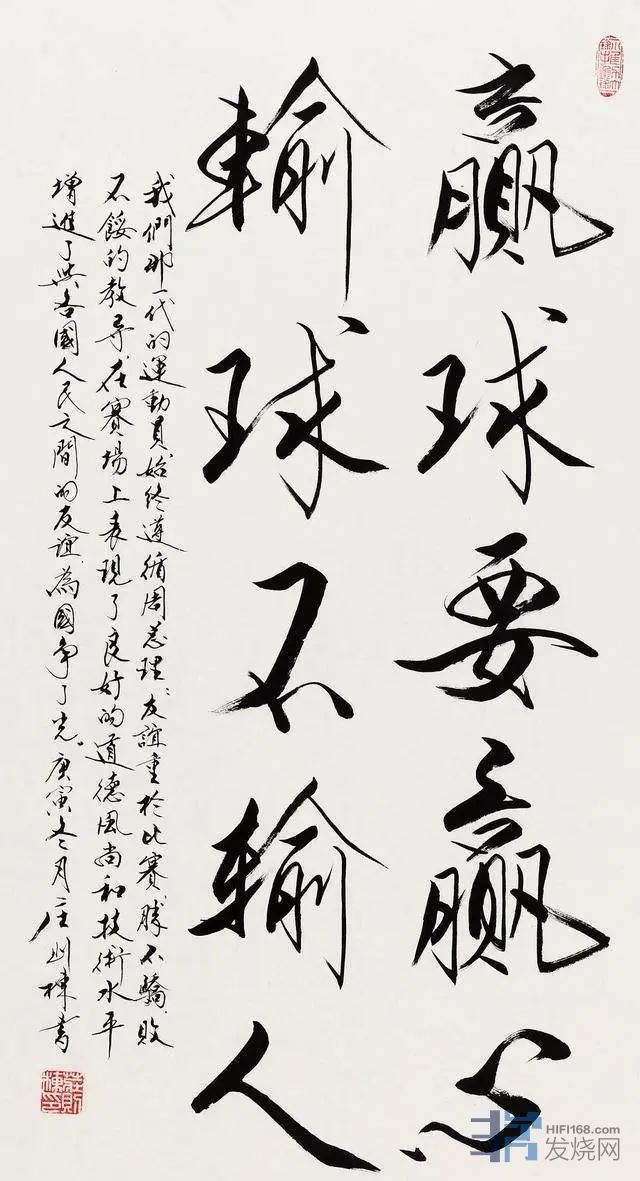 贏球要贏心
輸球不輸人
我們那一代的運動員始終遵循周总理"友誼重於比賽勝不驕敗
不餒的教导在賽場上表現了良好的道德風尚和技術水平
增進了與各國人民之間的友誼為國爭了光。庚寅冬月庄则棟書
莊則棟印
HIFI168.com
发烧网